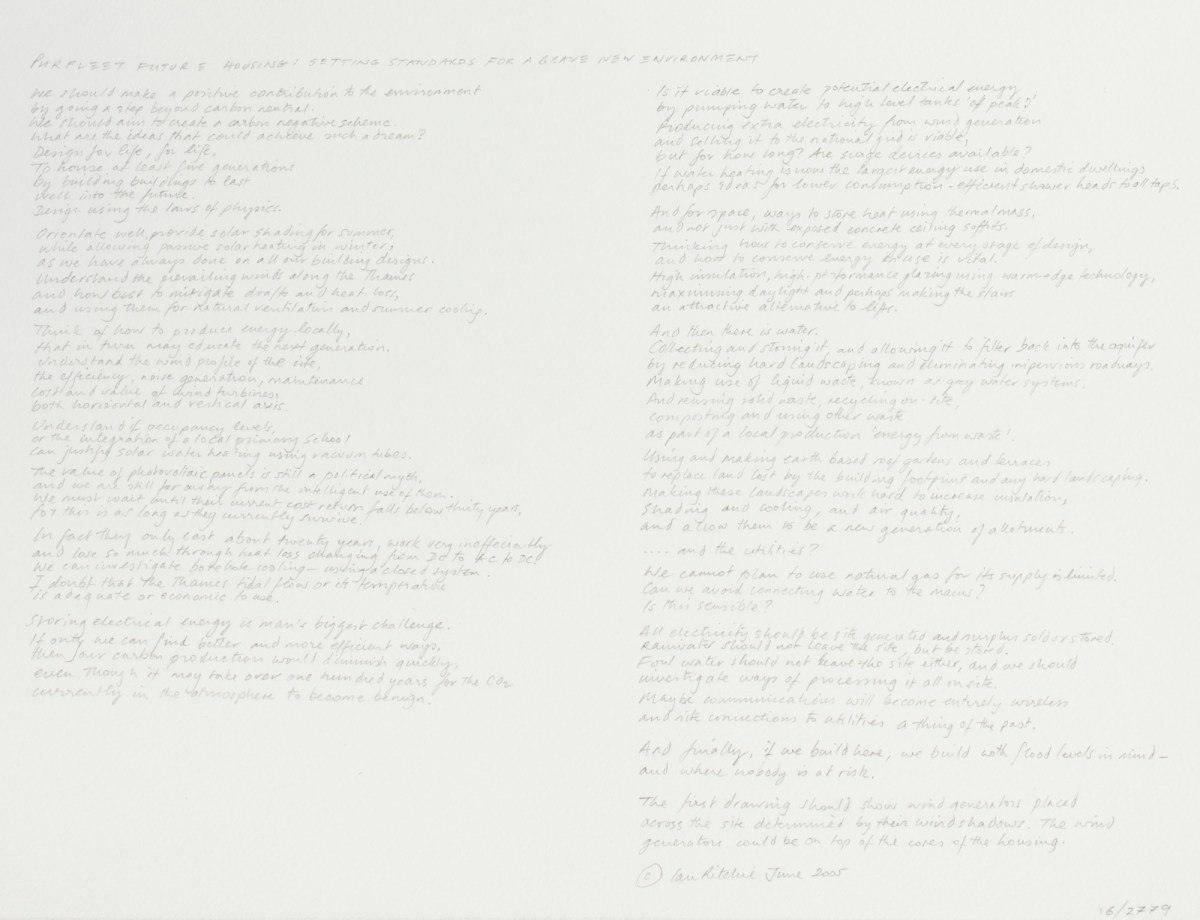 PURFLEET FUTURE HOUSING: SETTING STANDARDS FOR A BRAVE NEW ENVIRONMENT
We should make a positive contribution to the environment
by going a step beyond carbon neutral.
We should aim to create a carbon negative scheme.
What are the ideas that could achieve such a dream?
Design for life, for life,
To house at least five generations
by building buildings to last
well into the future.
Design using the laws of physics.
Orientate well, provide solar shading for summer,
while allowing passive solar heating in winter,
as we have always done on all our building designs.
Understand the prevailing winds along the Thames
and how best to mitigate drafts and heat loss,
and using them for natural ventilation and summer cooling.
Think of how to produce energy locally,
that in turn may educate the next generation.
Understand the wind profile of the site,
the efficiency, noise generation, maintenance
cost and value of wind turbines,
both horizontal and vertical axis.
Understand if occupancy levels,
or the integration of a local primary school
can justify solar water heating using vacuum tubes.
The value of photovoltaic panels is still a political myth,
and we are still far away from the intelligent use of them.
We must wait until their current cost return falls below thirty years,
for this is as long as they currently survive.
In fact they only last about twenty years, work very inefficiently
and lose so much through heat loss changing from DC to AC to DC!
We can investigate borehole cooling - using a closed system.
I doubt that the Thames tidal flow or its temperature
is adequate or economic to use.
Storing electrical energy is man's biggest challenge.
If only we can find better and more efficient ways,
then our carbon production would diminish quickly,
even though it may take over one hundred years for the CO2
currently in the atmosphere to become benign.
Is it viable to create potential electrical energy
by pumping water to high level tanks 'of peak?'
Producing extra electricity from wind generation
and selling it to the national grid is viable,
but for how long? Are surge devices available?
If water heating is now the largest energy use in domestic dwellings
perhaps ideas for lower consumption - efficient shower heads to all taps.
And for space, ways to store heat using thermal mass,
and not just with exposed concrete ceiling soffits.
Thinking how to conserve energy at every stage of design,
and how to conserve energy in use is vital.
High insulation, high-performance glazing using warm-edge technology,
maximising daylight and perhaps making the stairs
an attractive alternative to lifts.
And then there is water.
Collecting and storing it, and allowing it to filter back into the aquifer
by reducing hard landscaping and eliminating impervious roadways.
Making use of liquid waste, known as grey water systems.
And reusing solid waste, recycling on-site,
composting and using other waste
as part of a local production 'energy from waste'.
Using and making earth based roof gardens and terraces
to replace land lost by the building footprint and any hard landscaping.
Making these landscapes work hard to increase insulation,
Shading and cooling, and air quality,
and allow them to be a new generation of allotments.
.... and the utilities?
We cannot plan to use natural gas for its supply is limited.
Can we avoid connecting water to the mains?
Is this sensible?
All electricity should be site generated and surplus sold or stored.
Rainwater should not leave the site, but be stored.
Foul water should not leave the site either, and we should
investigate ways of processing it all on site.
Maybe communications will become entirely wireless
and site connections to utilities a thing of the past.
And finally, if we build here, we build with flood levels in mind -
and where nobody is at risk.
The first drawing should show wind generators placed
across the site determined by their wind shadows. The wind
generators could be on top of the cores of the housing.
© Ian Ritchie June 2005
16/2779